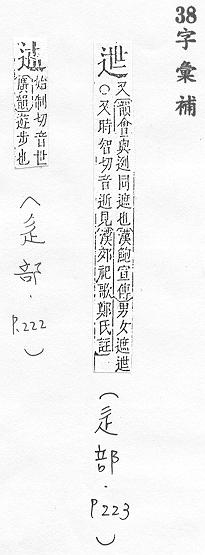 38 字彙補
迣 又韻會與迾同遮也漢鮑宣傳男女遮迣
○又時智切音逝見漢郊祀歌鄭氏註
(辵部.P.223)
始制切音世
廣韻遊步也
(辵部.P.222)